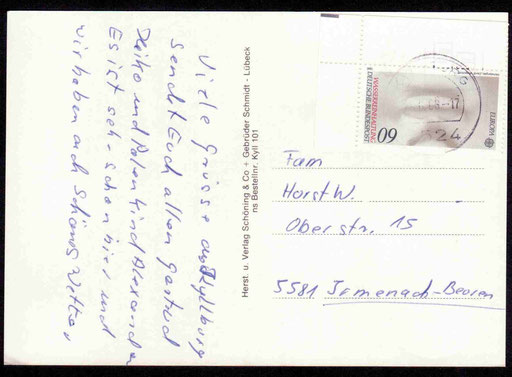 Viele Grüsse aus Kyllburg
sendet Euch allen Gertrud
Heiko und Patenkind Alexander
Es ist sehr schön hier und
wir haben auch schönes Wetter.
Herst. u. Verlag Schöning & Co + Gebrüder Schmidt - Lübeck
ns Bestellnr. Kyll 101
60
WASSERREINHALTUNG
DEUTSCHE BUNDESPOST
EUROPA
-17
524
Fam
Horst W.
Oberstr. 15
5581 Irmenach-Beuren